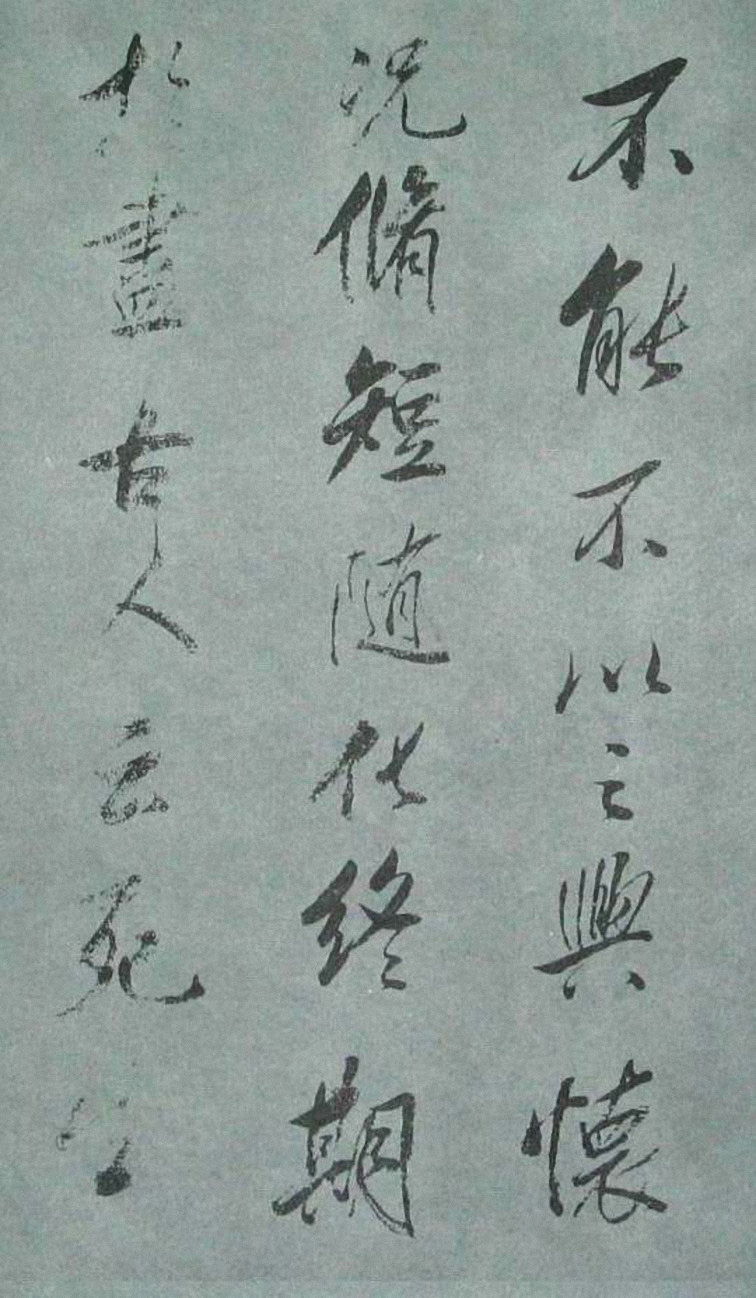 不能不以之興懷
況脩短随化終期
於盡古人云死生